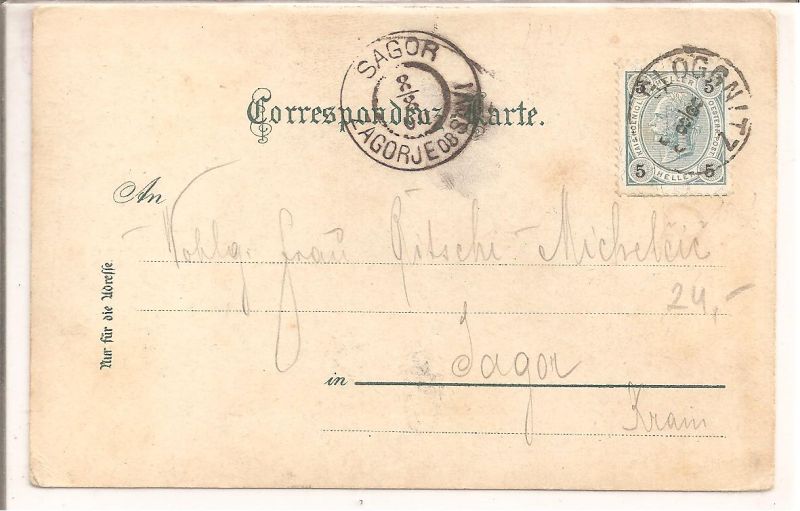 SAGOR
8/3
ZAGORJE OB SAVI
GLOGGNITZ
5 5
KAIS. KOENIGL. OESTERR. POST
5 HELLER 5
Correspondenz-Karte.
An
Wohlg. Frau Pitschi Michelčič
24,-
in Sagor
Krain
Nur für die Adresse.